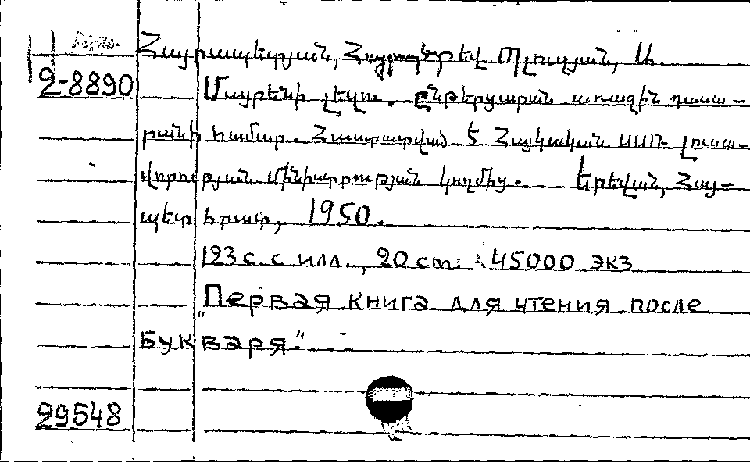 Հայրապետյան, Հայրապետ եվ Մլուգյան, Ա.
2-8890 Մայրենի լեզու. ընթերցարան առաջին դասա-
րանի համար. Հաստատված է Հայկական ՍՍՌ լուսա-
վորության մինիստրության կողմից. Երեվան, Հայ-
պետ հրատ, 1950.
123 с. с илл., 20 cm. 45000 экз
"Первая книга для чтения после
Букваря."
29548